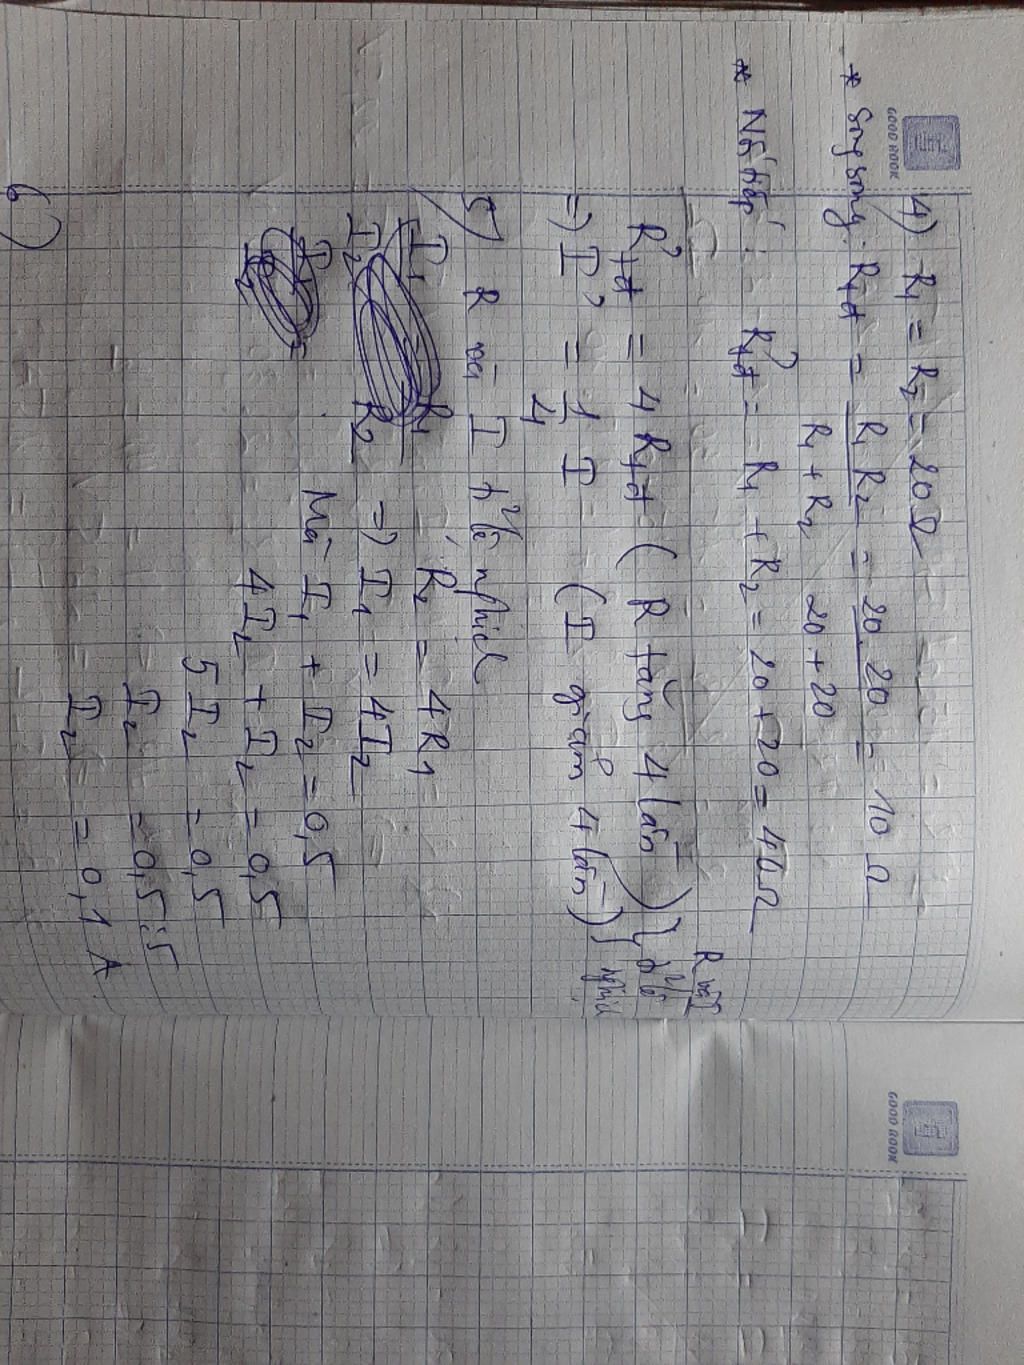 GOOD BOOK
4) R₁ = R₂ = 20Ω
* Song song: Rtđ = R₁R₂ / R₁ + R₂ = 20.20 / 20 + 20 = 10 Ω
* Nối tiếp: R'tđ = R₁ + R₂ = 20 + 20 = 40Ω
R'tđ = 4Rtđ (R tăng 4 lần) } R và I tỉ lệ nghịch
=) I' = 1/4 I (I giảm 4 lần)
5) R và I tỉ lệ nghịch
I₁ / I₂ R₁ / R₂ R₂ = 4R₁
=) I₁ = 4I₂
Mà I₁ + I₂ = 0,5
4I₂ + I₂ = 0,5
5I₂ = 0,5
I₂ = 0,5:5
I₂ = 0,1 A
6)
GOOD BOOK